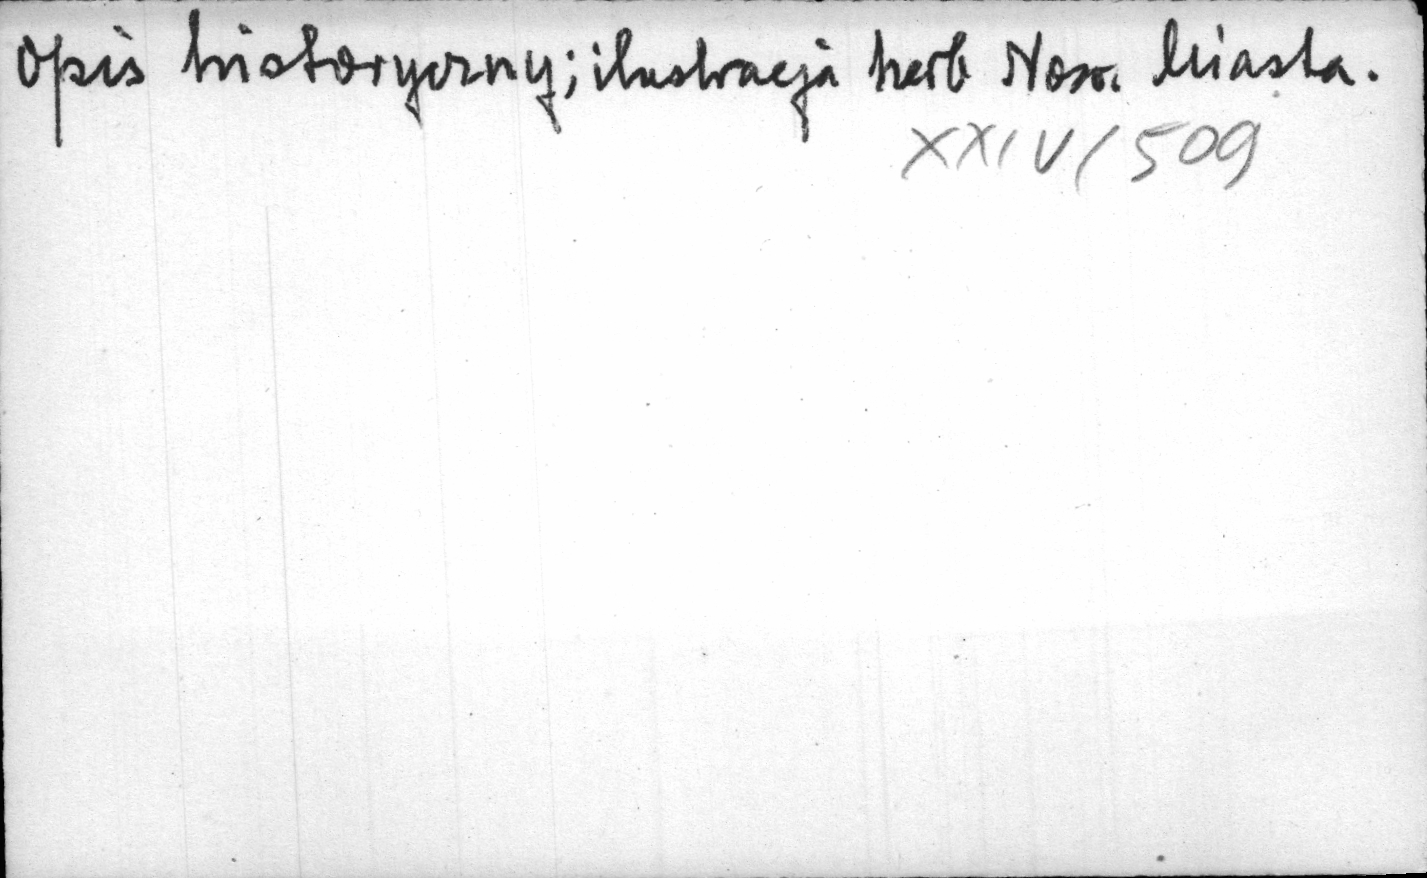 Opis historyczny; ilustracja herb Now. Miasta.
XXIV/509